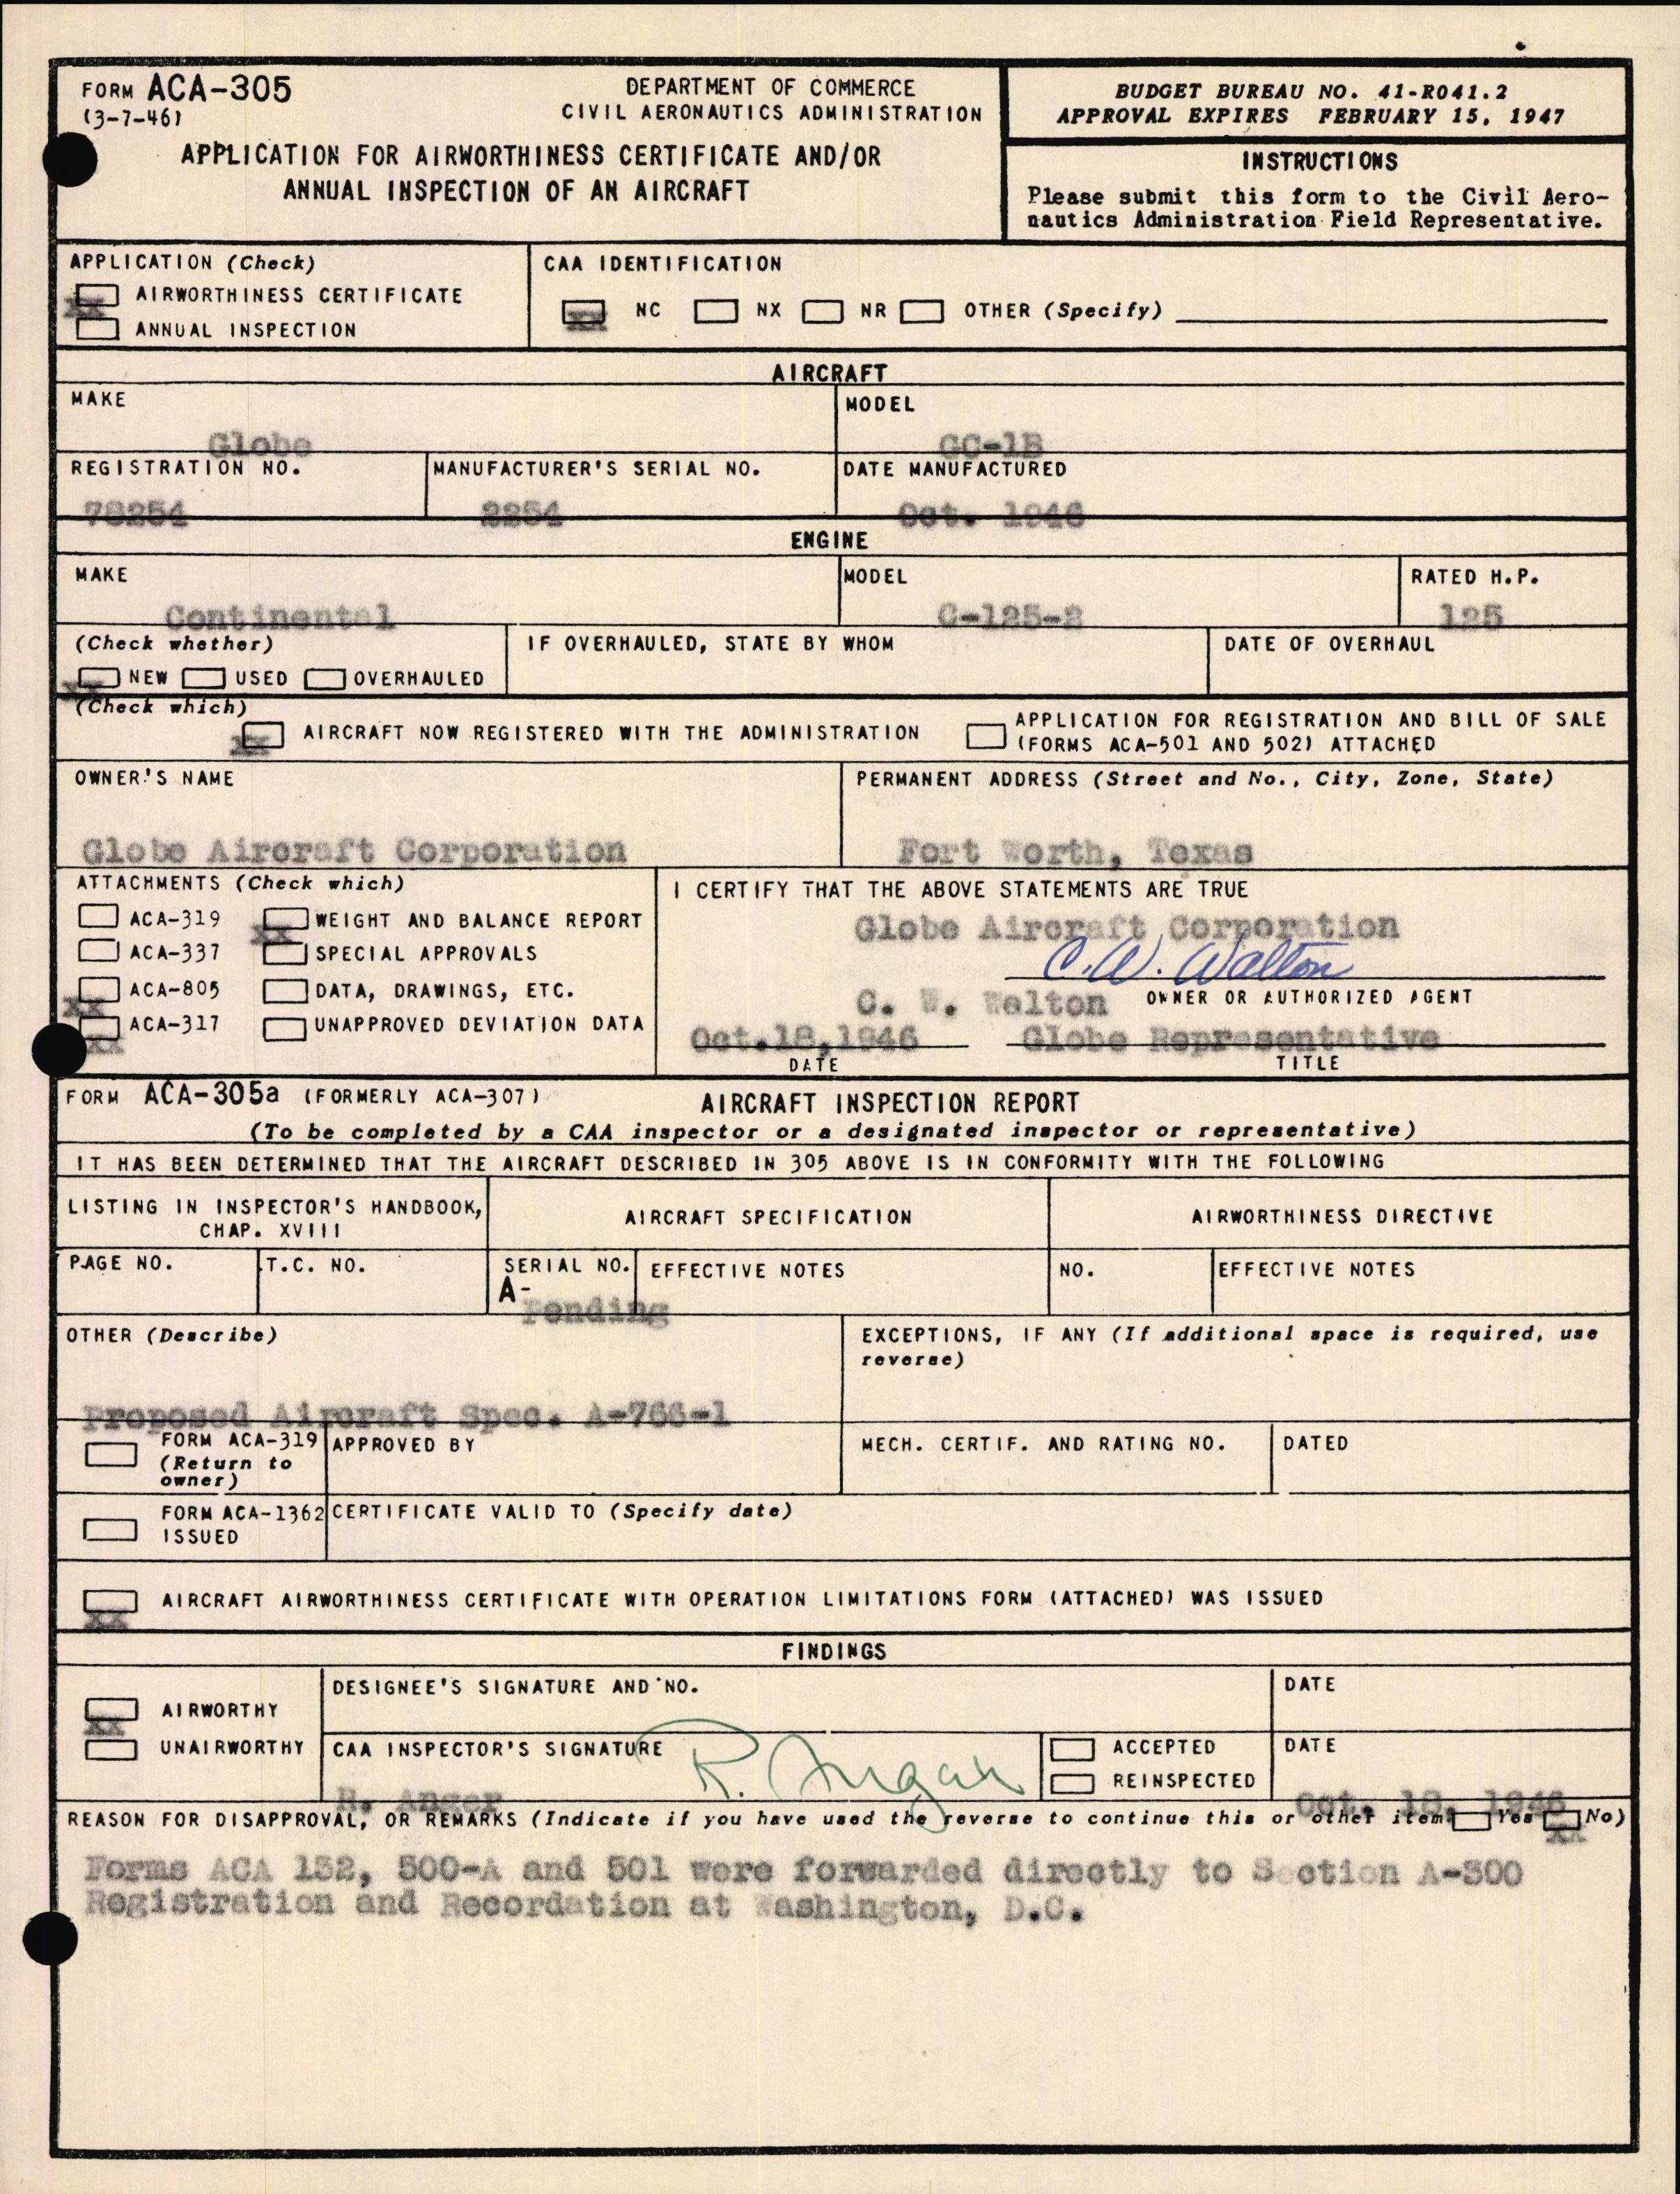 FORM ACA-305
(3-7-46)
DEPARTMENT OF COMMERCE
CIVIL AERONAUTICS ADMINISTRATION
APPLICATION FOR AIRWORTHINESS CERTIFICATE AND/OR
ANNUAL INSPECTION OF AN AIRCRAFT
BUDGET BUREAU NO. 41-R041.2
APPROVAL EXPIRES FEBRUARY 15, 1947
INSTRUCTIONS
Please submit this form to the Civil Aero-
nautics Administration Field Representative.
APPLICATION (Check)
XX AIRWORTHINESS CERTIFICATE
ANNUAL INSPECTION
CAA IDENTIFICATION
XX NC NX NR OTHER (Specify)
AIRCRAFT
MAKE
Globe
MODEL
GC-1B
REGISTRATION NO.
78254
MANUFACTURER'S SERIAL NO.
2254
DATE MANUFACTURED
Oct. 1946
ENGINE
MAKE
Continental
MODEL
C-125-2
RATED H.P.
125
(Check whether)
XX NEW USED OVERHAULED
IF OVERHAULED, STATE BY WHOM
DATE OF OVERHAUL
(Check which)
XX AIRCRAFT NOW REGISTERED WITH THE ADMINISTRATION
APPLICATION FOR REGISTRATION AND BILL OF SALE
(FORMS ACA-501 AND 502) ATTACHED
OWNER'S NAME
Globe Aircraft Corporation
PERMANENT ADDRESS (Street and No., City, Zone, State)
Fort Worth, Texas
ATTACHMENTS (Check which)
ACA-319 XX WEIGHT AND BALANCE REPORT
ACA-337 SPECIAL APPROVALS
XX ACA-805 DATA, DRAWINGS, ETC.
XX ACA-317 UNAPPROVED DEVIATION DATA
I CERTIFY THAT THE ABOVE STATEMENTS ARE TRUE
Globe Aircraft Corporation
C.W. Walton
C. W. Walton OWNER OR AUTHORIZED AGENT
Oct.18,1946 Globe Representative
DATE TITLE
FORM ACA-305a (FORMERLY ACA-307) AIRCRAFT INSPECTION REPORT
(To be completed by a CAA inspector or a designated inspector or representative)
IT HAS BEEN DETERMINED THAT THE AIRCRAFT DESCRIBED IN 305 ABOVE IS IN CONFORMITY WITH THE FOLLOWING
LISTING IN INSPECTOR'S HANDBOOK,
CHAP. XVIII
AIRCRAFT SPECIFICATION
AIRWORTHINESS DIRECTIVE
PAGE NO. T.C. NO. SERIAL NO. EFFECTIVE NOTES NO. EFFECTIVE NOTES
A- Pending
OTHER (Describe)
Proposed Aircraft Spec. A-766-1
EXCEPTIONS, IF ANY (If additional space is required, use
reverse)
FORM ACA-319
(Return to
owner)
APPROVED BY
MECH. CERTIF. AND RATING NO.
DATED
FORM ACA-1362
ISSUED
CERTIFICATE VALID TO (Specify date)
XX AIRCRAFT AIRWORTHINESS CERTIFICATE WITH OPERATION LIMITATIONS FORM (ATTACHED) WAS ISSUED
FINDINGS
XX AIRWORTHY
UNAIRWORTHY
DESIGNEE'S SIGNATURE AND NO.
DATE
CAA INSPECTOR'S SIGNATURE
R. Anger
R. Anger
ACCEPTED
REINSPECTED
DATE
Oct. 18, 1946
REASON FOR DISAPPROVAL, OR REMARKS (Indicate if you have used the reverse to continue this or other item Yes XX No)
Forms ACA 132, 500-A and 501 were forwarded directly to Section A-300
Registration and Recordation at Washington, D.C.